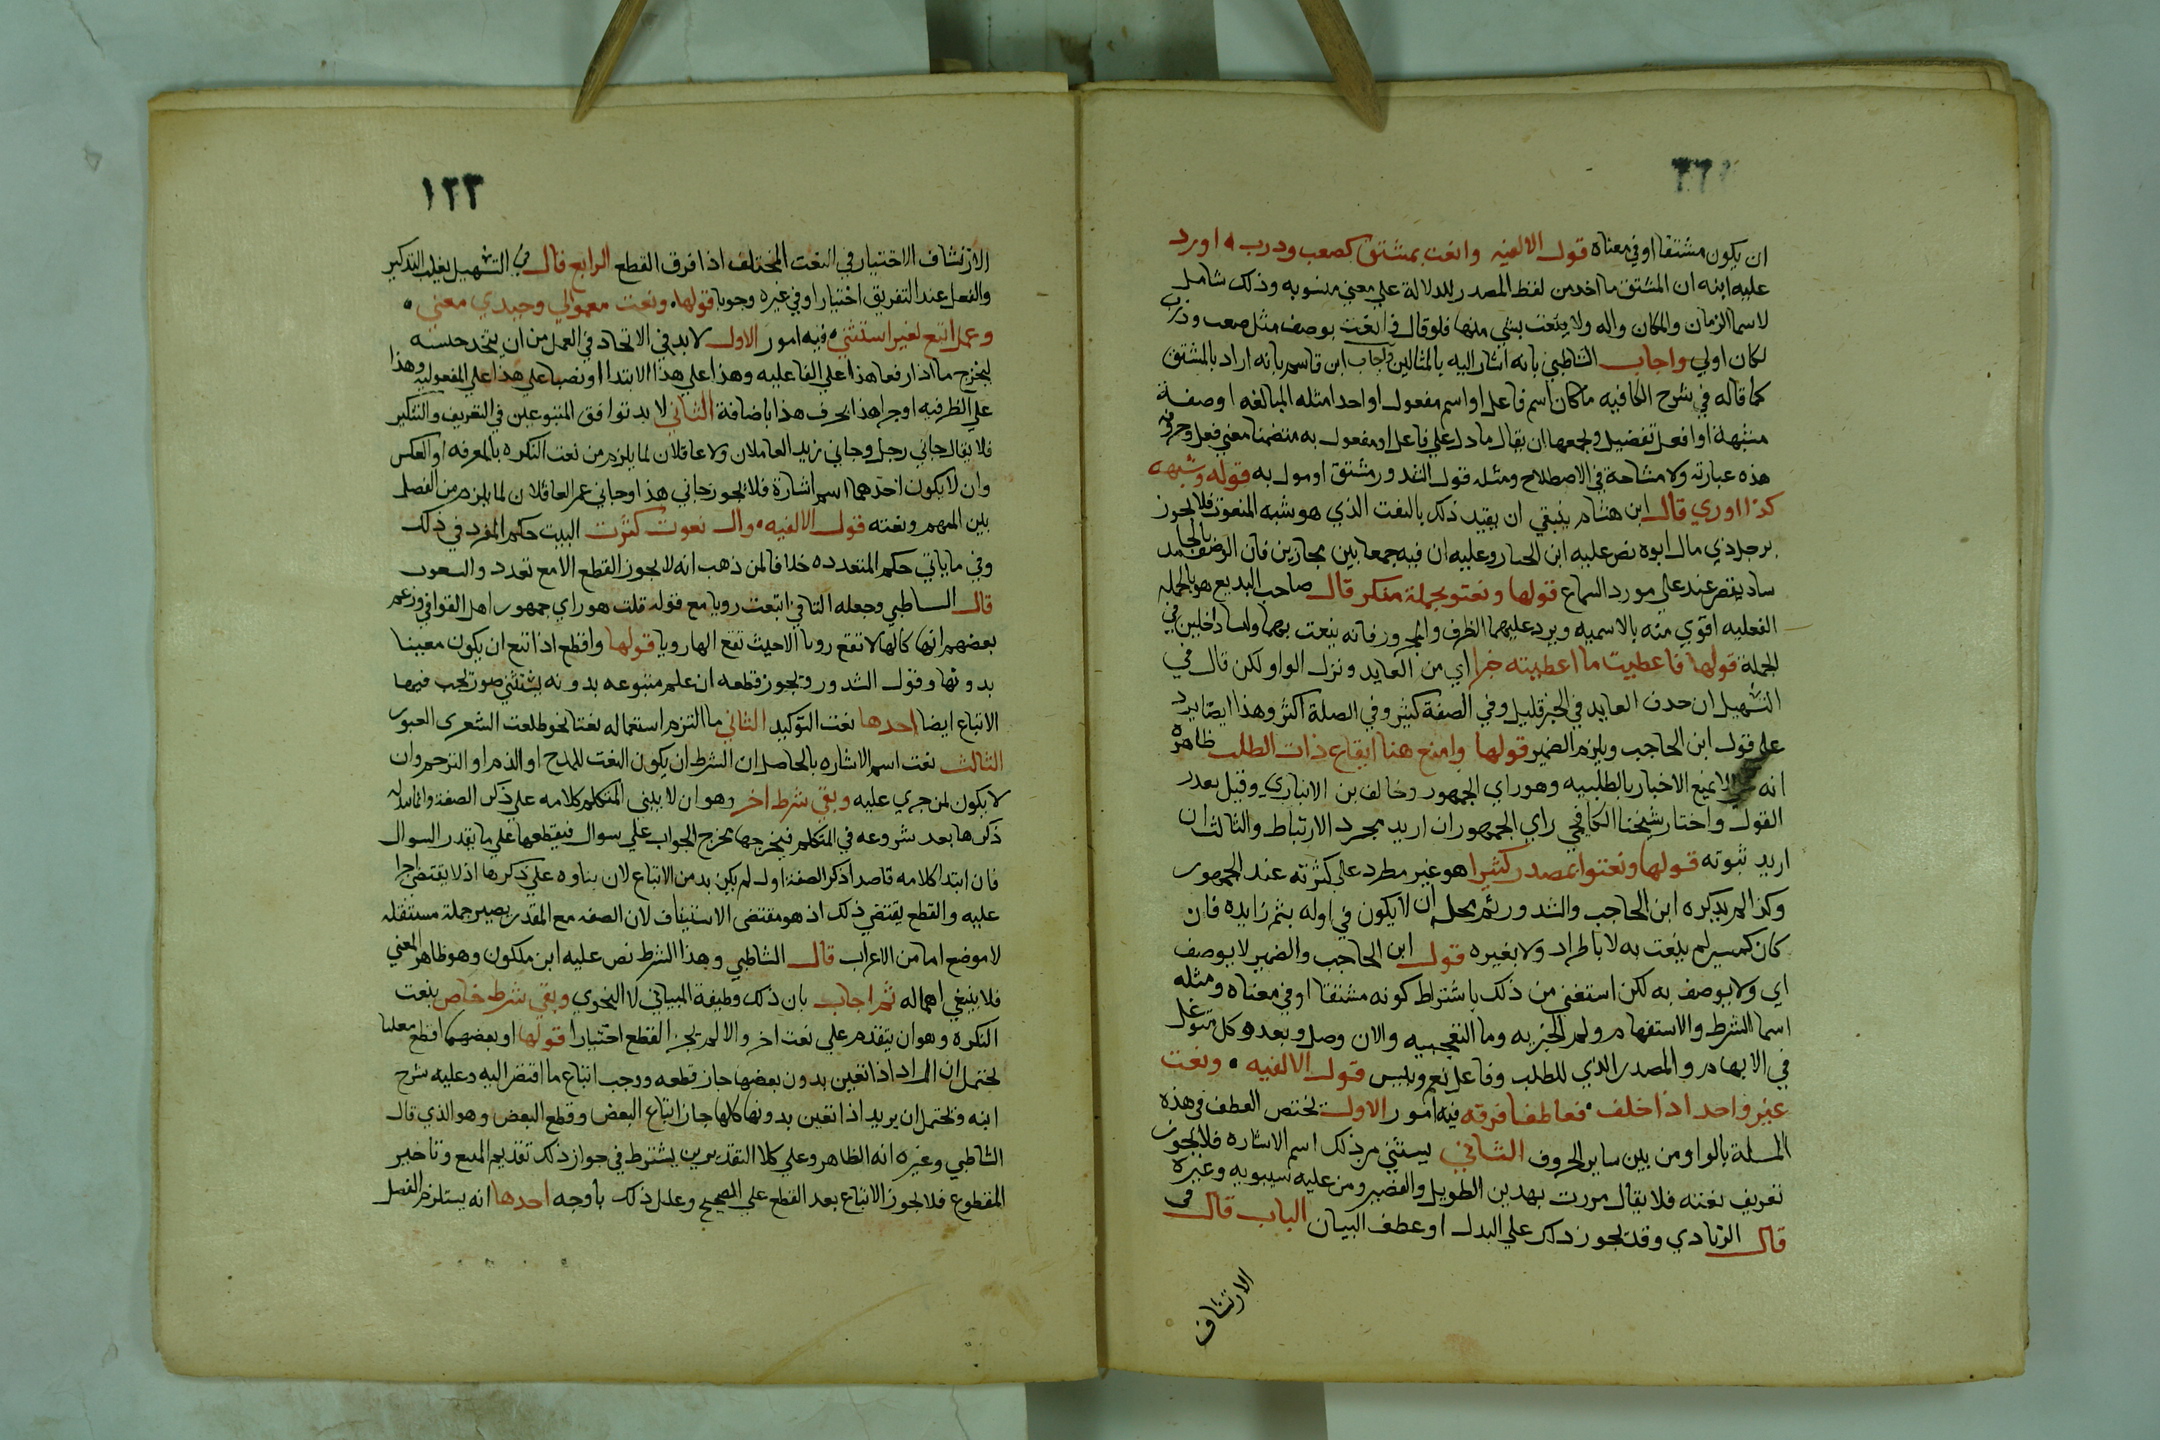 ان يكون مشتقا او في معناه قول الالفيه وانعت بمشتق كصعب ودرب اورد
عليه ابنه ان المشتق ما اخد من لفظ المصدر للدلالة على معني منسوب به وذلك شامل
لاسما الزمان والمكان واله ولا ينعت بشي منها فلو قال وانعت بوصف مثل صعب وذرب
لكان اولي واجاب الشاطبي بانه اشار اليه بالمثالين واجاب ابن قاسم بانه اراد بالمشتق
كما قاله في شرح الكافيه ما كان اسم فاعل او اسم مفعول او احد امثله المبالغه او صفة
مشبهة او افعل تفضيل ويجمعها ان يقال ما دل علي فاعل او مفعول به متضمنا معني فعل وحروفه
هذه عبارته ولا مشاحة في الاصطلاح ومثله قول الشدور مشتق او مول به قوله وشبهه
كذا اوري قال ابن هشام ينبغي ان يقيد ذلك بالنعت الذي هو شبه المنعوت فلا يجوز
برجل ذي مال ابوه نص عليه ابن الخباز وعليه ان فيه جمعا بين مجازين فان الوصف بالجامد
ساد يقتصر عند علي مورد السماع قولها ونعتو بجملة منكر قال صاحب البديع هو بالجمله
الفعليه اقوي منه بالاسميه ويرد عليهما الظرف والمجرور فانه ينعت بهما ولسا داخلين في
الجملة قولها فاعطيت ما اعطيته خبرا اي من العايد ونزل الواو لكن قال في
التسهيل ان حدف العايد في الخبر قليل وفي الصفة كثير وفي الصلة اكثر وهذا ايضا يرد
علي قول ابن الحاجب ويلزم الضمير قولها وامنع هنا ايقاع ذات الطلب ظاهره
انه لا يمنع الاخبار بالطلبيه وهو راي الجمهور وخالف بن الانباري وقيل بعدر
القول واختار شيخنا الكافجي راي الجمهور ان اريد مجرد الارتباط والثالث ان
اريد ثبوته قولها ونعتوا بمصدر كثيرا هو غير مطرد علي كثرته عند الجمهور
وكذا لم يذكره ابن الحاجب والشدور ثم محله ان لا يكون في اوله ميم زايده فان
كان كمسير لم ينعت به لا باطراد ولا بغيره قول ابن الحاجب والضمير لا يوصف
اي ولا يوصف به لكن استغني من ذلك باشتراط كونه مشتقا او في معناه ومثله
اسما الشرط والاستفهام ولم الخبريه وما التعجبيه والان وصل وبعده وكل متوغل
في الابهام والمصدر الذي للطلب وفاعل نعم وبيس قول الالفيه ونعت
غير واحد اذا اختلف فعاطفا فرقه فيه امور الاول يختص العطف في هذه
المسلة بالواو من بين ساير الحروف الثاني يستثني من ذلك اسم الاشاره فلا يجوز
تعريف نعته فلا يقال مررت بهدين الطويل والقصير ومن عليه سيبويه وغيره
قال الزيادي وقد يجوز ذلك علي البدل او عطف البيان الباب قال في
الارتشاف
١٢٣
الارتشاف الاختيار في النعت المختلف اذا فرق القطع الرابع قال في التسهيل يغلب التدكير
والفعل عند التفريق اختيارا وفي غيره وجوبا قولها ونعت معمولي وحيدي معني
وعمل اتبع لغير استثني فيه امور الاول لا بد في الاتحاد في العمل من ان يتحد جنسه
ليخرج ما اذا رفعا هذا علي الفاعليه وهذا علي هذا الابتدا او نصبا علي هذا علي المفعوليه وهذا
علي الظرفيه او جرا هذا بحرف هذا باضافة الثاني لا بد توافق المتبوعين في التعريف والتنكير
فلا يقال جاني رجل وجاني زيد العاملان ولا عاقلان لما يلزم من نعت النكره بالمعرفه او العكس
وان لا يكون احدهما اسم اشارة فلا يجوز جاني هذا وجاني عمر العاقلان لما يلزم من الفصل
بين المبهم ونعته قول الالفيه وال نعوت كثرت البيت حكم المفرد في ذلك
وفي ما ياتي حكم المتعدده خلافا لمن ذهب انه لا يجوز القطع الا مع تعدد والنعوت
قال الساطبي وجعله التا في اتبعت رويا مع قوله قلت هو راي جمهور اهل القوافي وزعم
بعضهم انها كالها لا تقع رويا الا حيث تقع الها رويا قولها واقطع اذا اتبع ان يكون معينا
بدونها وقول الشدور ويجوز قطعه ان علم متبوعه بدونه يستثني صور يجب فيها
الاتباع ايضا احدها نعت التوكيد الثاني ما التزم استعماله نعتا نحو طلعت الشعرى العبور
الثالث نعت اسم الاشاره بالحاصل ان الشرط ان يكون النعت للمدح او الذم او الترحم وان
لا يكون لمن جري عليه وبقي شرط اخر وهو ان لا يبني المتكلم كلامه علي ذكر الصفة وانما بدا له
ذكرها بعد شروعه في التكلم فيخرجها مخرج الجواب علي سوال فيقطعها علي ما يقدر السوال
فان ابتدا كلامه قاصدا ذكر الصفة اول لم يكن بد من الاتباع لان بناوه علي ذكرها اذ لا يقتضي اجرا
عليه والقطع يقتضي ذلك اذ هو مقتضي الاستيناف لان الصفه مع المقدر يصير جملة مستقله
لا موضع لها من الاعراب قال الشاطبي وهذا الشرط نص عليه ابن ملكون وهو ظاهر المعني
فلا ينبغي اهماله ثم اجاب بان ذلك وظيفة البياني لا النحوي وبقي شرط خاص بنعت
النكره وهو ان يتقدم علي نعت اخر والا لم يجز القطع اختيارا قولها او بعضهما اقطع معلنا
يحتمل ان المراد اذا تعين بدون بعضها جاز قطعه ووجب اتباع ما افتقر اليه وعليه شرح
ابنه ويحتمل ان يريد اذا تعين بدونها كلها جاز اتباع البعض وقطع البعض وهو الذي قال
الشاطبي وغيره انه الظاهر وعلي كلا التقديرين يشترط في جواز ذلك تقديم المتبع وتاخير
المقطوع فلا يجوز الاتباع بعد القطع علي الصحيح وعلل ذلك باوجه احدها انه يستلزم الفصل